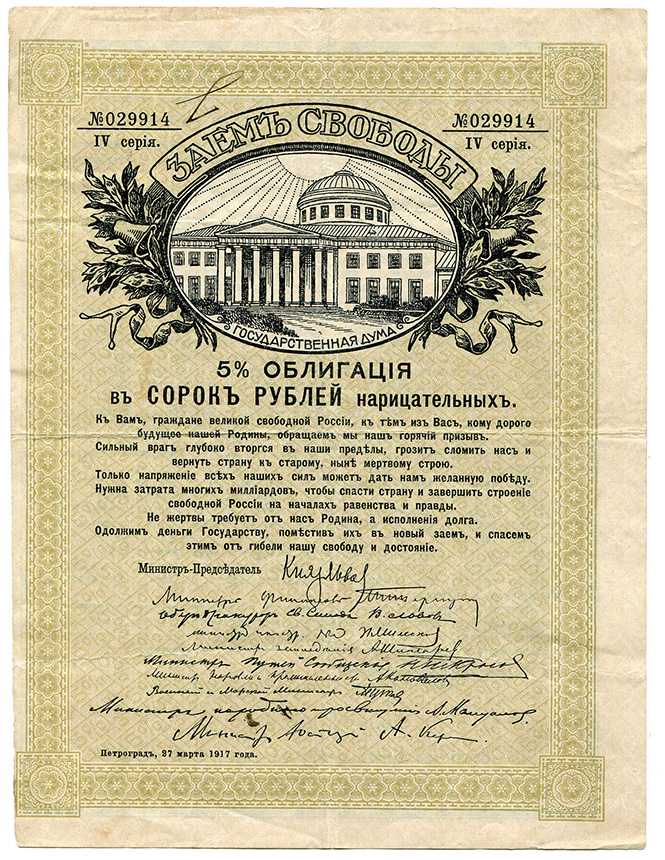 №029914
IV серія.
№029914
IV серія.
ЗАЕМЪ СВОБОДЫ
ГОСУДАРСТВЕННАЯ ДУМА
5% ОБЛИГАЦІЯ
въ СОРОКЪ РУБЛЕЙ нарицательныхъ.
Къ Вамъ, граждане великой свободной Россіи, къ тѣмъ изъ Васъ, кому дорого
будущее нашей Родины, обращаемъ мы нашъ горячій призывъ.
Сильный врагъ глубоко вторгся въ наши предѣлы, грозитъ сломить насъ и
вернуть страну къ старому, нынѣ мертвому строю.
Только напряженіе всѣхъ нашихъ силъ можетъ дать намъ желанную побѣду.
Нужна затрата многихъ милліардовъ, чтобы спасти страну и завершить строеніе
свободной Россіи на началахъ равенства и правды.
Не жертвы требуетъ отъ насъ Родина, а исполненія долга.
Одолжимъ деньги Государству, помѣстивъ ихъ въ новый заемъ, и спасемъ
этимъ отъ гибели нашу свободу и достояніе.
Министръ-Предсѣдатель Князь Львов
Министръ Финансовъ
Оберъ Прокуроръ Св. Синода В. Львовъ
Министръ
Министръ земледѣлія А. Шингарев
Министръ Путей Сообщенія Н. Некрасов
Министръ Торговли и Промышленности А. Коновалов
Военный и Морской Министръ
Министръ народнаго просвѣщенія А. Мануйлов.
Министр Юстиціи А. Кер
Петроградъ, 27 марта 1917 года.